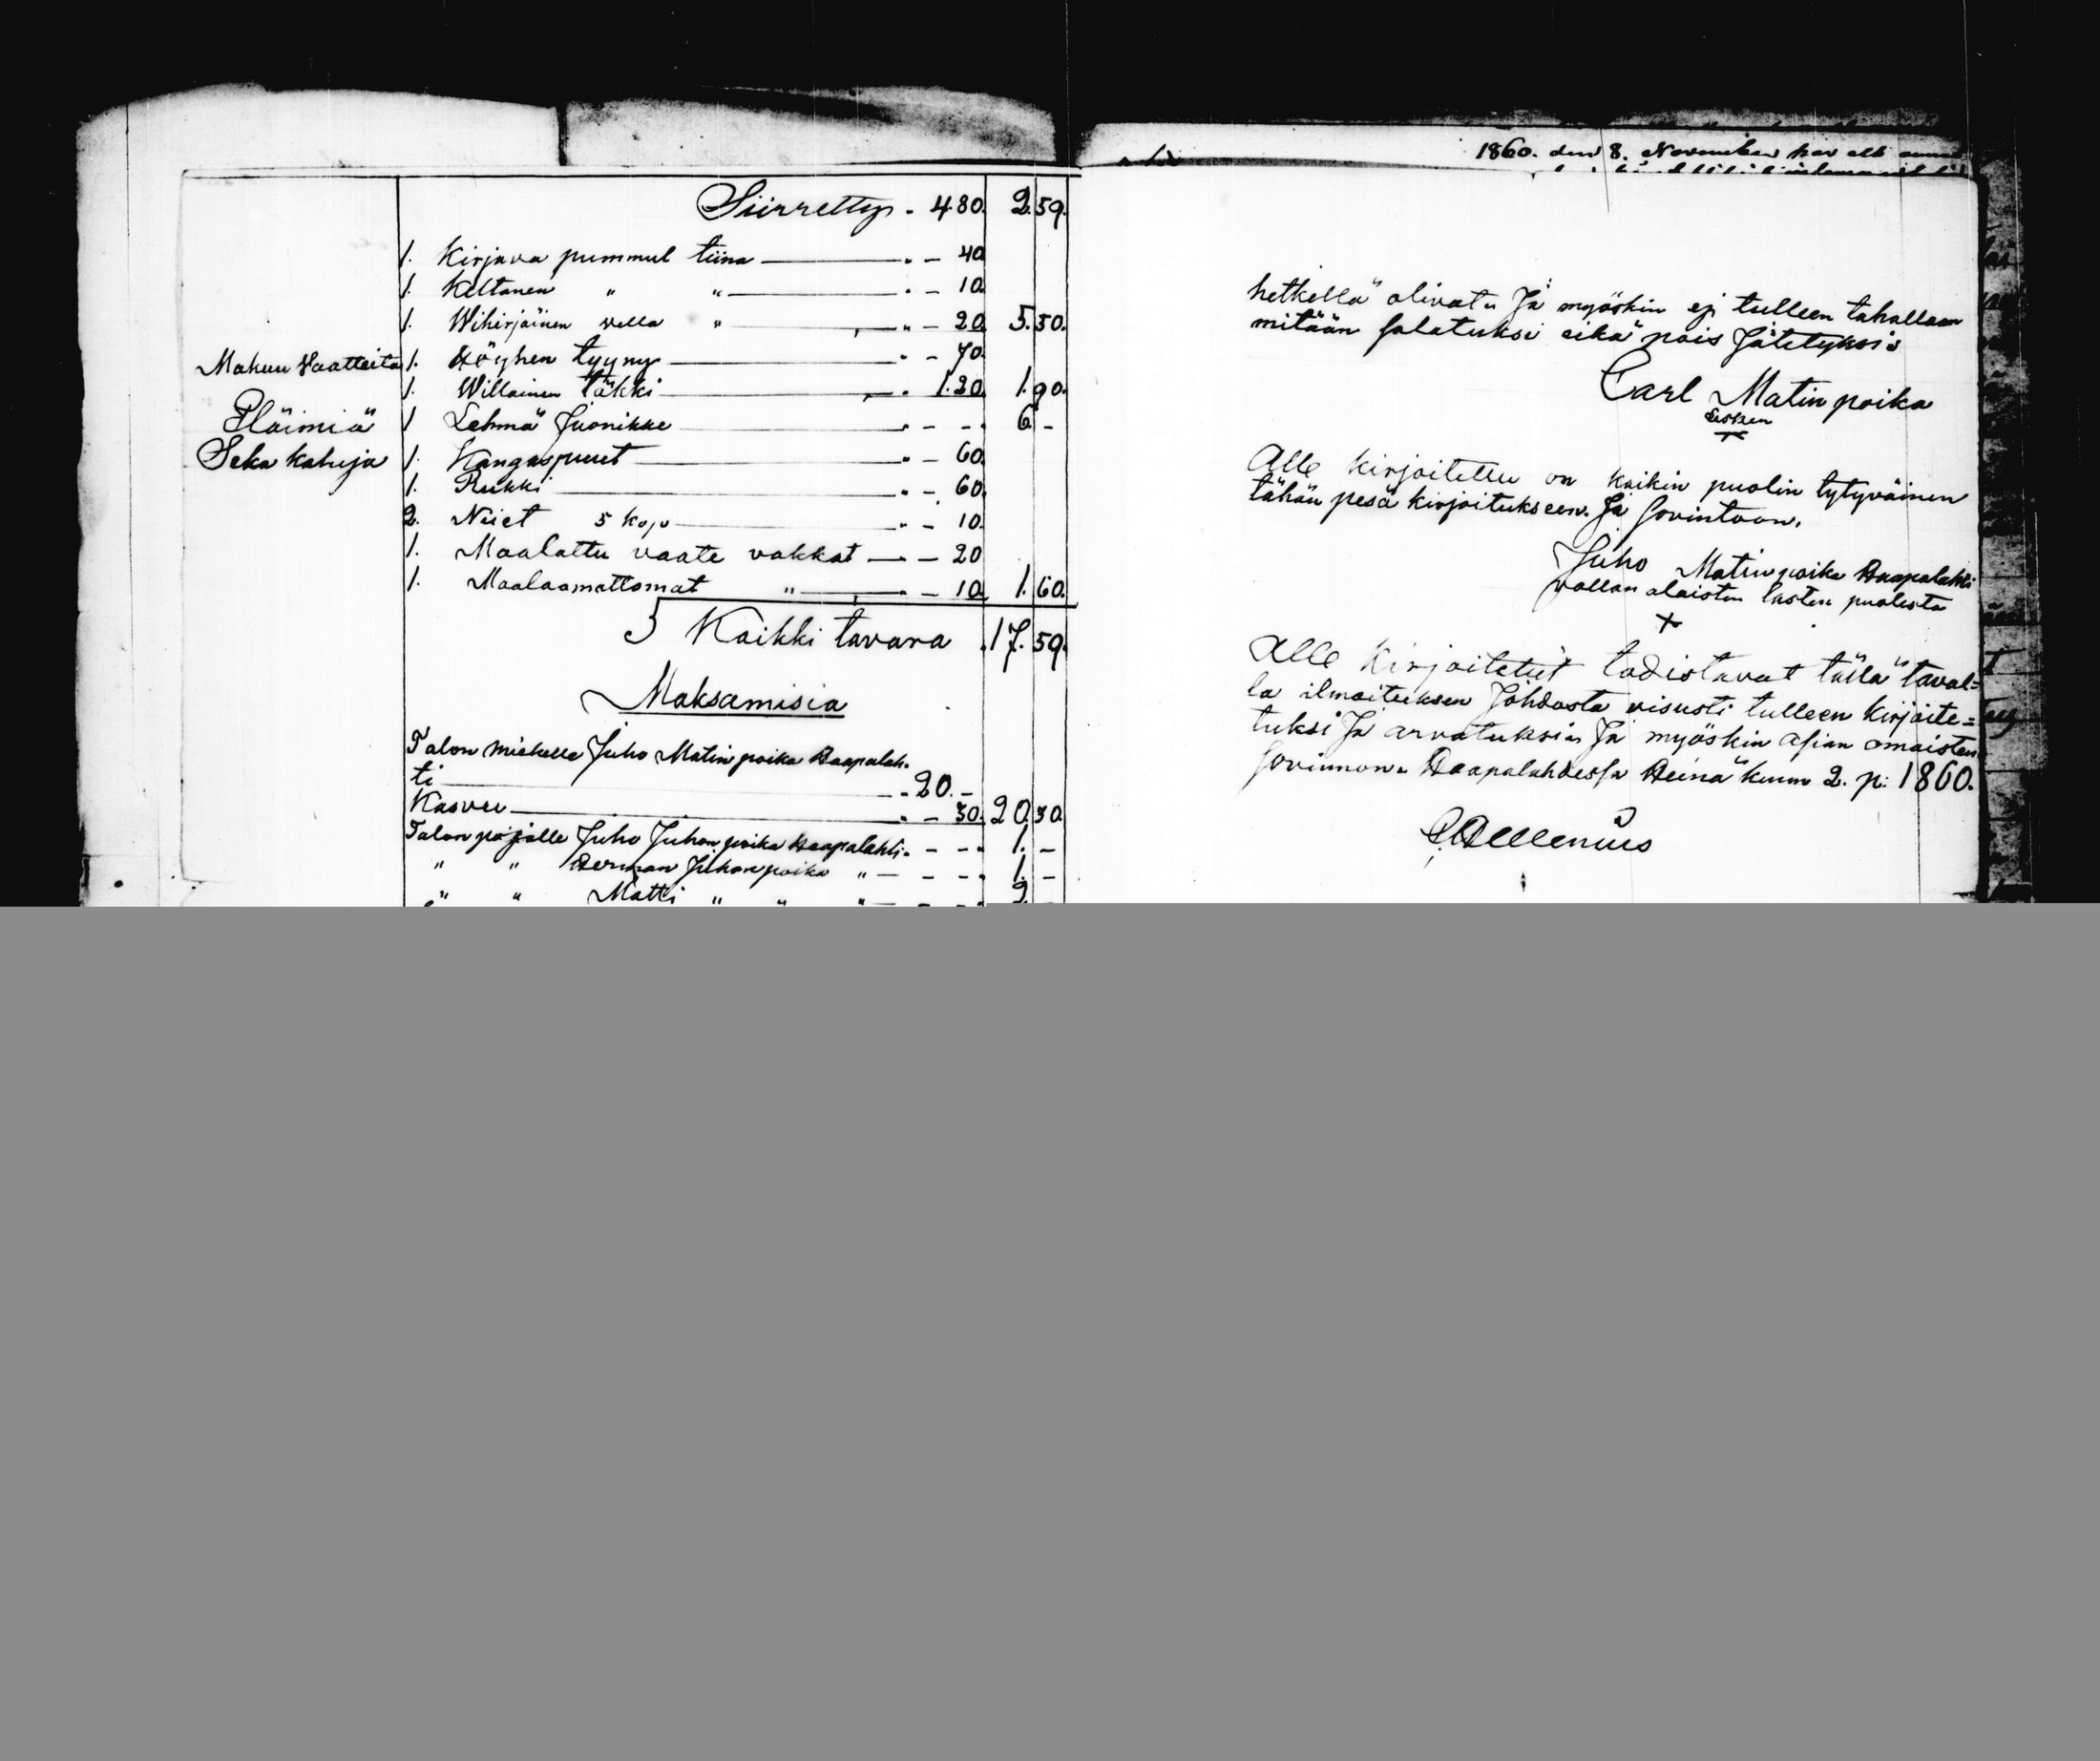 Siirretty . 4.80. 2.59.
1. Kirjava pummul tiina — . — 40
1. Keltanen " " — . — 10.
1. Wihirjäinen vella " — " — 20. 5.50.
Makuu Vaatteita 1. Höyhen tyyny — . — 70.
1. Willainen täkki — . 1.20. 1.90.
Eläimiä 1 Lehmä Juonikke — . — — . 6. —
Seka kaluja 1. Kangaspuut — " — 60.
1. Rukki — " — 60.
2. Niiet 5 kop — " — 10.
1. Maalattu vaate vakkat — — 20
1. Maalaamattomat " — . — 10. 1.60.
Kaikki tavara 17.59.
Maksamisia
Talon miehelle Juho Matin poika Haapalah.
ti — . 20. —
Kasvu — . — 30. 20.30.
Talon pojalle Juho Juhon poika Haapalahti. — — . 1. —
" " Herman Juhon poika " — — — . 1. —
" " Matti " " " — — — . 2. —
1860. den 8. November har
hetkellä olivat. Ja myöskin ej tulleen tahallaan
mitään salatuksi eikä pois Jätetyksi.
Carl Matin poika
Lesken
Alle kirjoitettu on kaikin puolin tytyväinen
tähän pesä kirjoitukseen. Ja sovintoon.
Juho Matin poika Haapalahti
vallan alaisten lasten puolesta
Alle kirjoitetut todistavat tällä taval=
la ilmoituksen Johdosta visusti tulleen kirjoite=
tuksi Ja arvatuksi. Ja myöskin asian omaisten
sovinnon. Haapalahdessa Heinä kuun 2. p: 1860.
C. Hellenius